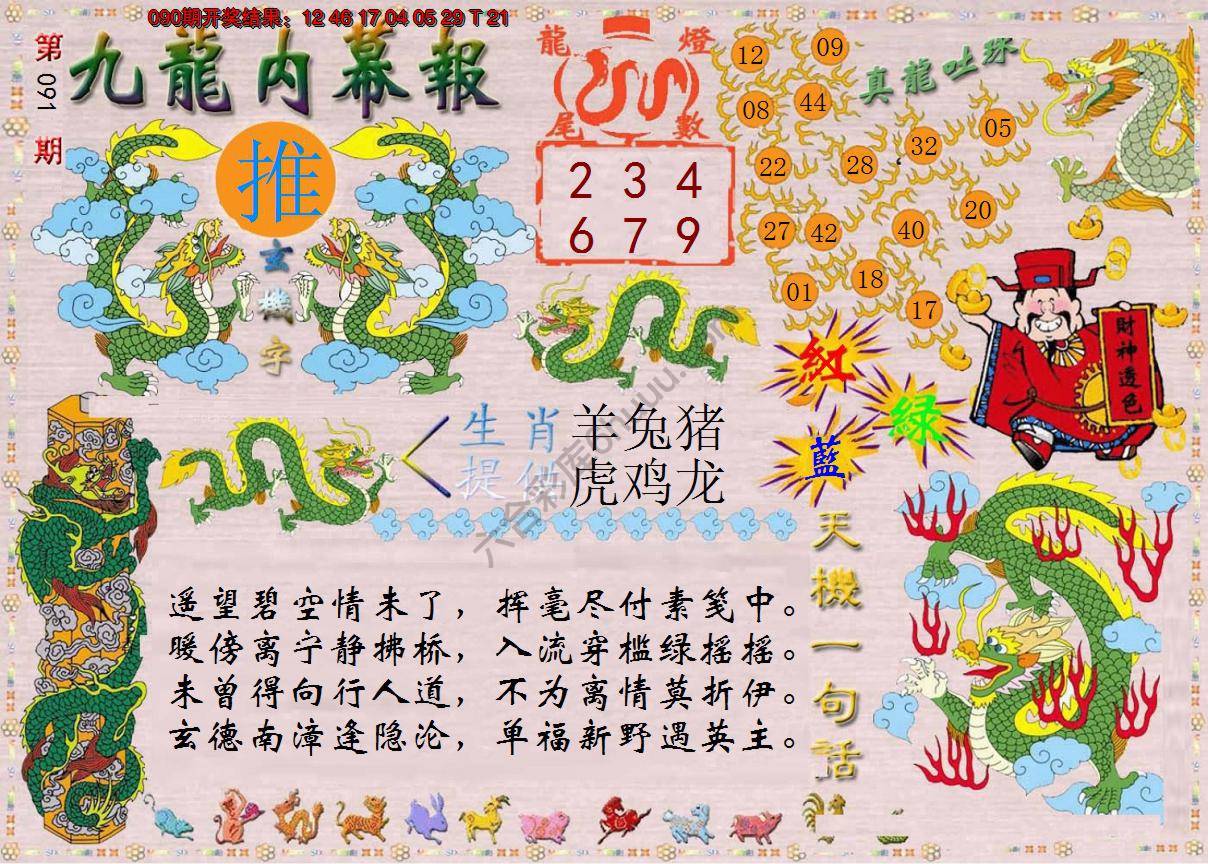 090期开奖结果：12 46 17 04 05 29 T 21
第091期
九龍内幕報
推
玄機字
龍燈
尾數
2 3 4
6 7 9
真龍吐珠
12 09
08 44
22 28 32 05
27 42 40 20
01 18 17
財神透色
紅
绿
藍
生肖 羊兔猪
提供 虎鸡龙
天機一句話
遥望碧空情未了，挥毫尽付素笺中。
暖傍离宁静拂桥，入流穿槛绿摇摇。
未曾得向行人道，不为离情莫折伊。
玄德南漳逢隐沦，单福新野遇英主。